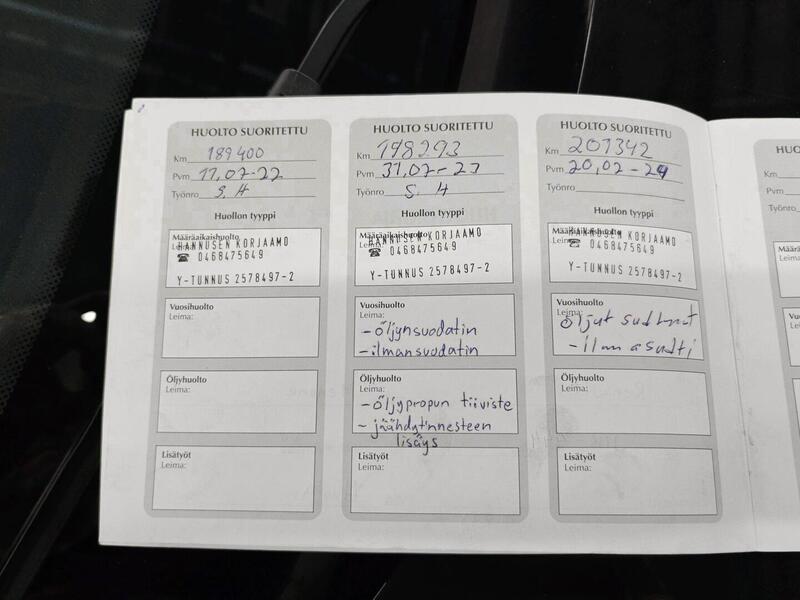 HUOLTO SUORITETTU
Km 189400
Pvm 11.07-22
Työnro S. H
Huollon tyyppi
Määräaikaishuolto
HANNUSEN KORJAAMO
☎ 0468475649
Y-TUNNUS 2578497-2
Vuosihuolto
Leima:
Öljyhuolto
Leima:
Lisätyöt
Leima:
HUOLTO SUORITETTU
Km 198293
Pvm 31,07-23
Työnro S. H
Huollon tyyppi
Määräaikaishuolto
HANNUSEN KORJAAMO
☎ 0468475649
Y-TUNNUS 2578497-2
Vuosihuolto
Leima:
- öljynsuodatin
- ilmansuodatin
Öljyhuolto
Leima:
- öljypropun tiiviste
- jäähdytinnesteen
lisäys
Lisätyöt
Leima:
HUOLTO SUORITETTU
Km 201342
Pvm 20,02-24
Työnro
Huollon tyyppi
Määräaikaishuolto
HANNUSEN KORJAAMO
☎ 0468475649
Y-TUNNUS 2578497-2
Vuosihuolto
Leima:
Öljyt
Öljyhuolto
Leima:
Lisätyöt
Leima:
Km
Pvm